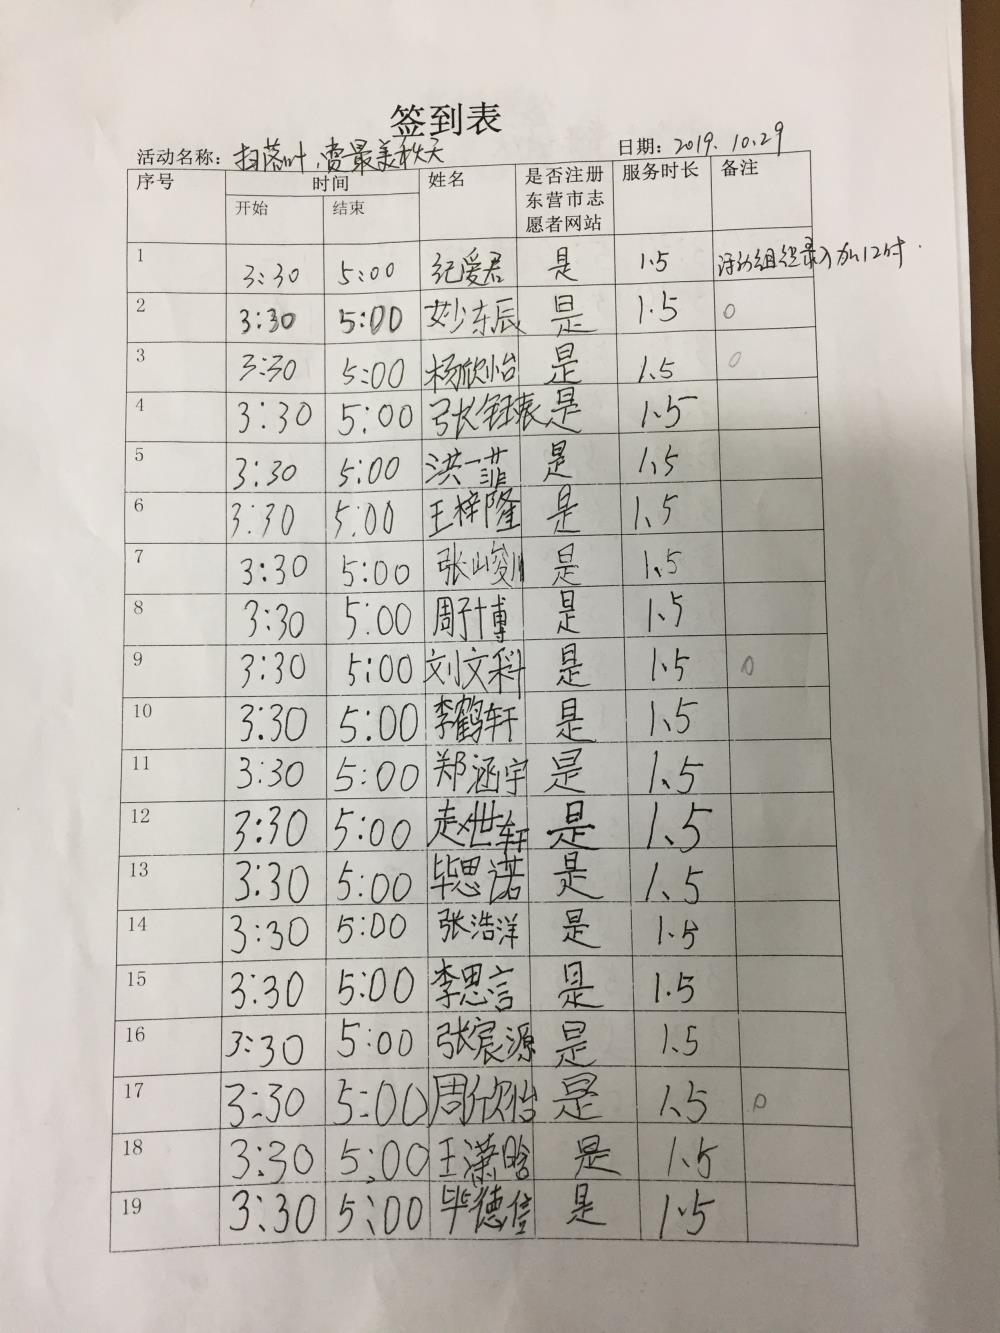 签到表
活动名称：扫落叶，赏最美秋天 日期：2019.10.29
序号 时间 姓名 是否注册东营市志愿者网站 服务时长 备注
开始 结束
1 3:30 5:00 纪爱君 是 1.5 活动组织录入加12付
2 3:30 5:00 妙东辰 是 1.5 0
3 3:30 5:00 杨欣怡 是 1.5 0
4 3:30 5:00 张钰袁 是 1.5
5 3:30 5:00 洪一菲 是 1.5
6 3:30 5:00 王梓隆 是 1.5
7 3:30 5:00 张峻川 是 1.5
8 3:30 5:00 周子博 是 1.5
9 3:30 5:00 刘文科 是 1.5 0
10 3:30 5:00 李鹤轩 是 1.5
11 3:30 5:00 郑涵宇 是 1.5
12 3:30 5:00 赵世轩 是 1.5
13 3:30 5:00 毕思诺 是 1.5
14 3:30 5:00 张浩洋 是 1.5
15 3:30 5:00 李思言 是 1.5
16 3:30 5:00 张宸源 是 1.5
17 3:30 5:00 周欣怡 是 1.5 0
18 3:30 5:00 王潇晗 是 1.5
19 3:30 5:00 毕德信 是 1.5